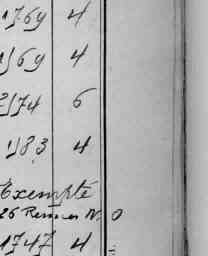 1769 4
1169 4
2174 6
1183 4
Exempte
26 Rennes N. 0
1747 4